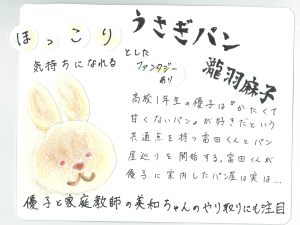 ほっこり
うさぎパン
とした
気持ちになれる
ファンタジー
あり
瀧羽麻子
高校1年生の優子は『かたくて
甘くないパン』が好きだという
共通点を持つ富田くんとパン
屋巡りを開始する。富田くんが
優子に案内したパン屋は実は…
優子と家庭教師の美和ちゃんのやり取りにも注目